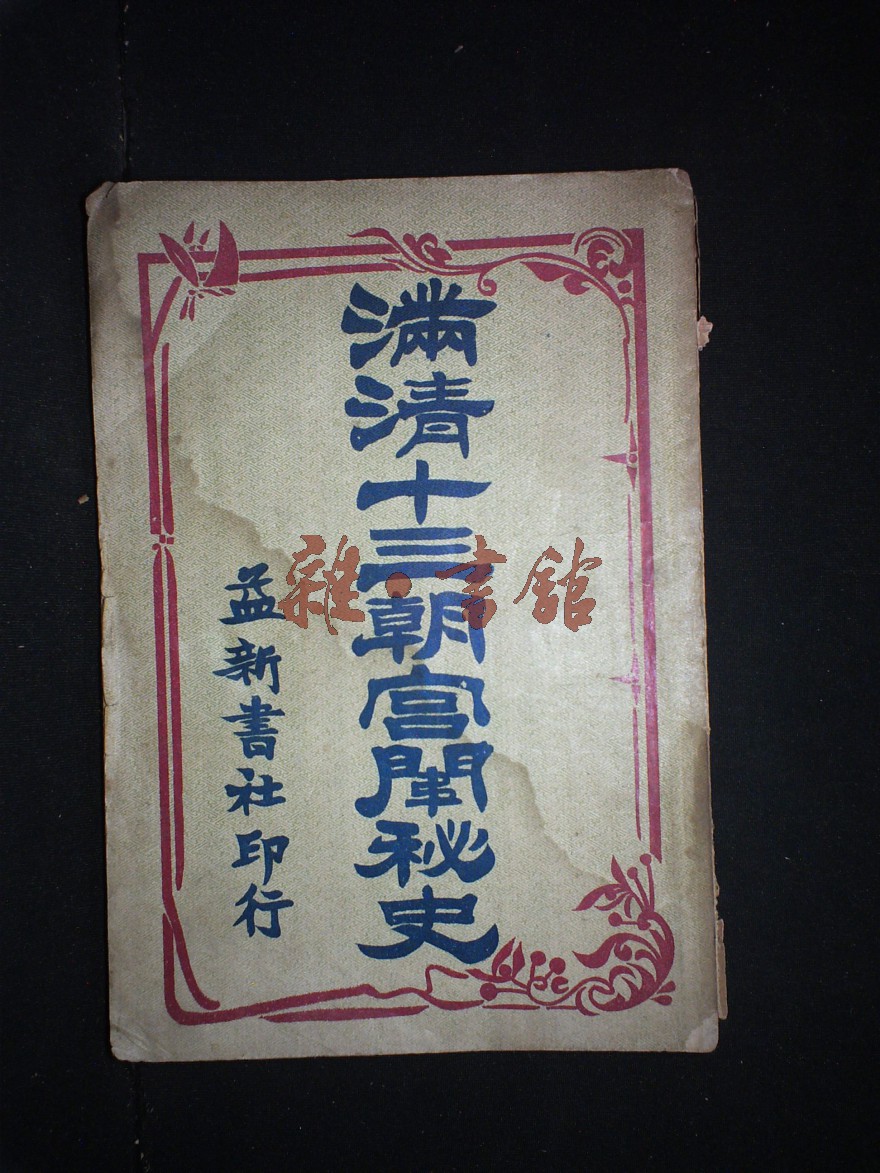 滿清十三朝宮闈秘史
益新書社印行
雜·書館